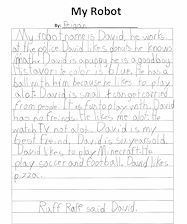 My Robot
By: Reigan
My robot name is David, he works
at the police David likes donuts he knows
math. David is a puppy he is a good boy
His favorite color is blue. He has a
ball with him because he likes to play
a lot. David is small it can get carried
from people. It is fun to play with. David
has no freinds. He likes me alot. He
watch TV not alot. David is my
best freind. David is six years old.
David likes to play Minecraft. He
play soccer and football. David likes
pizza.
Ruff Rufe said David.